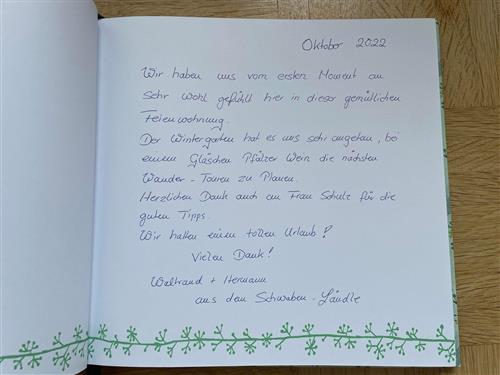 Oktober 2022
Wir haben uns vom ersten Moment an
sehr wohl gefühlt hier in dieser gemütlichen
Ferienwohnung.
Der Wintergarten hat es uns sehr angetan, bei
einem Gläschen Pfälzer Wein die nächsten
Wander-Touren zu Planen.
Herzlichen Dank auch an Frau Schulz für die
guten Tipps.
Wir hatten einen tollen Urlaub!
Vielen Dank!
Waltraud + Hermann
aus dem Schwaben-Ländle